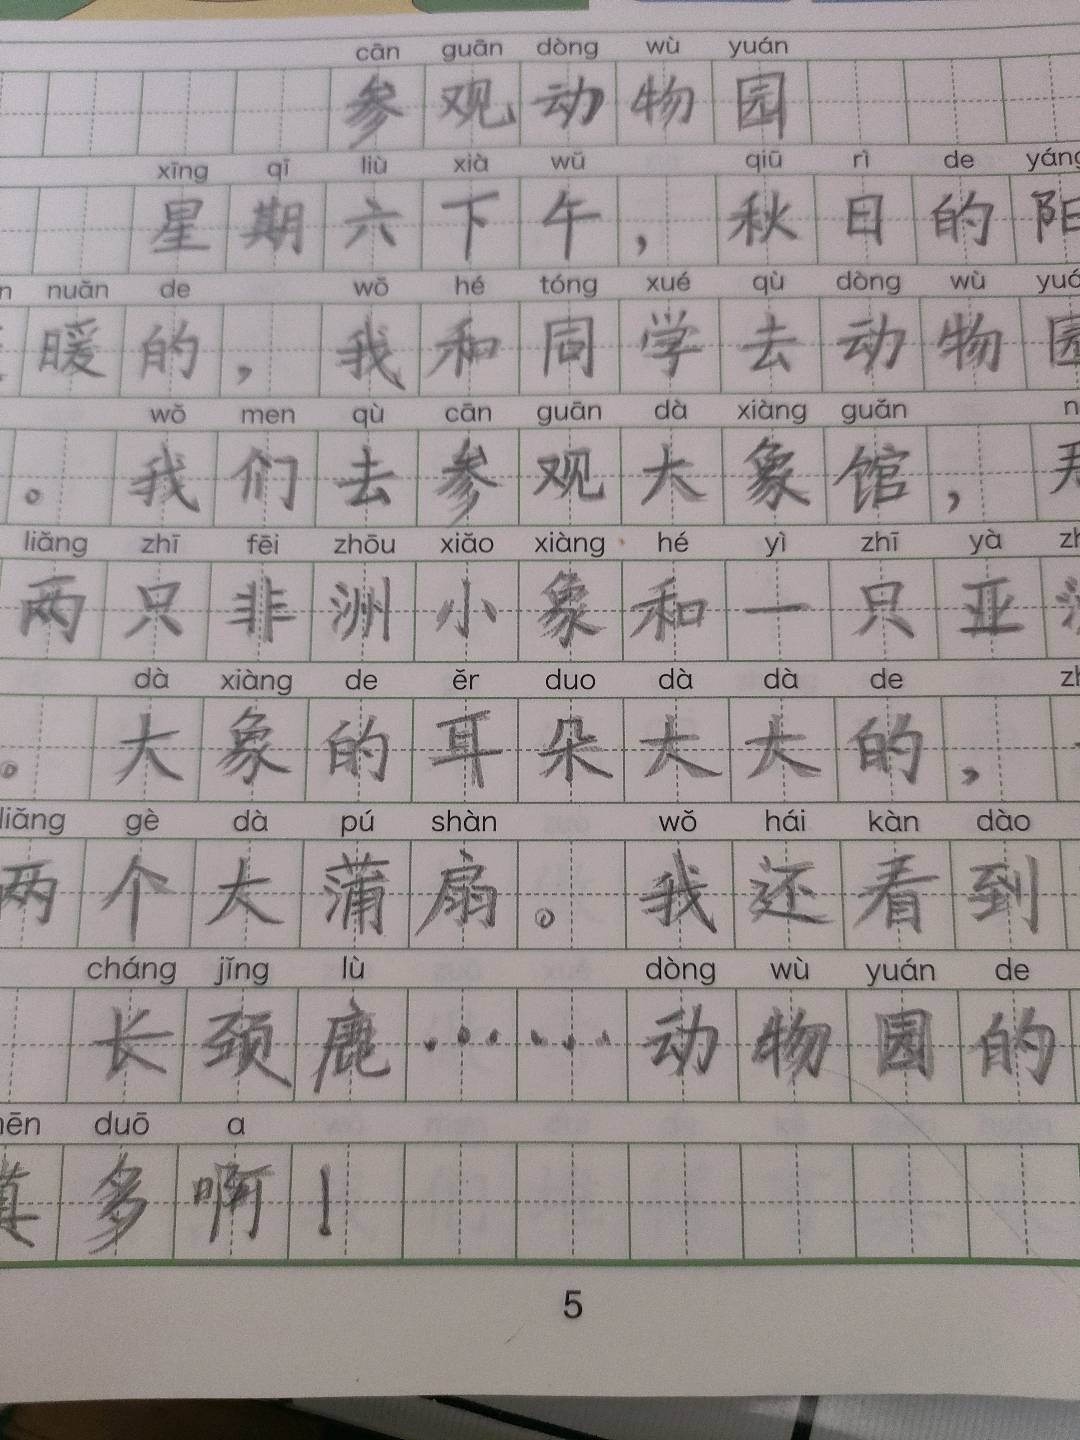 cān guān dòng wù yuán
参观动物园
xīng qī liù xià wǔ qiū rì de yáng
星期六下午，秋日的阳
nuǎn de wǒ hé tóng xué qù dòng wù
暖的，我和同学去动物园
wǒ men qù cān guān dà xiàng guǎn
。我们去参观大象馆，
liǎng zhī fēi zhōu xiǎo xiàng hé yì zhī yà
两只非洲小象和一只亚
dà xiàng de ěr duo dà dà de
。大象的耳朵大大的，
liǎng gè dà pú shàn wǒ hái kàn dào
两个大蒲扇。我还看到
cháng jǐng lù dòng wù yuán de
长颈鹿……动物园的
duō a
真多啊！
5